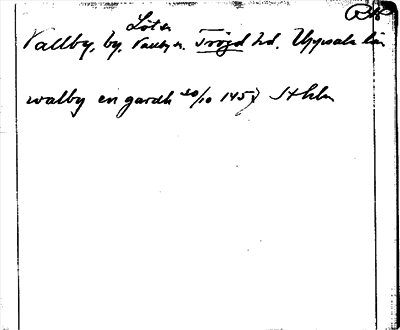 Löts
Vallby, by, Vallby s. Trögd hd. Uppsala län
walby en gardh 20/10 1457 Sthlm